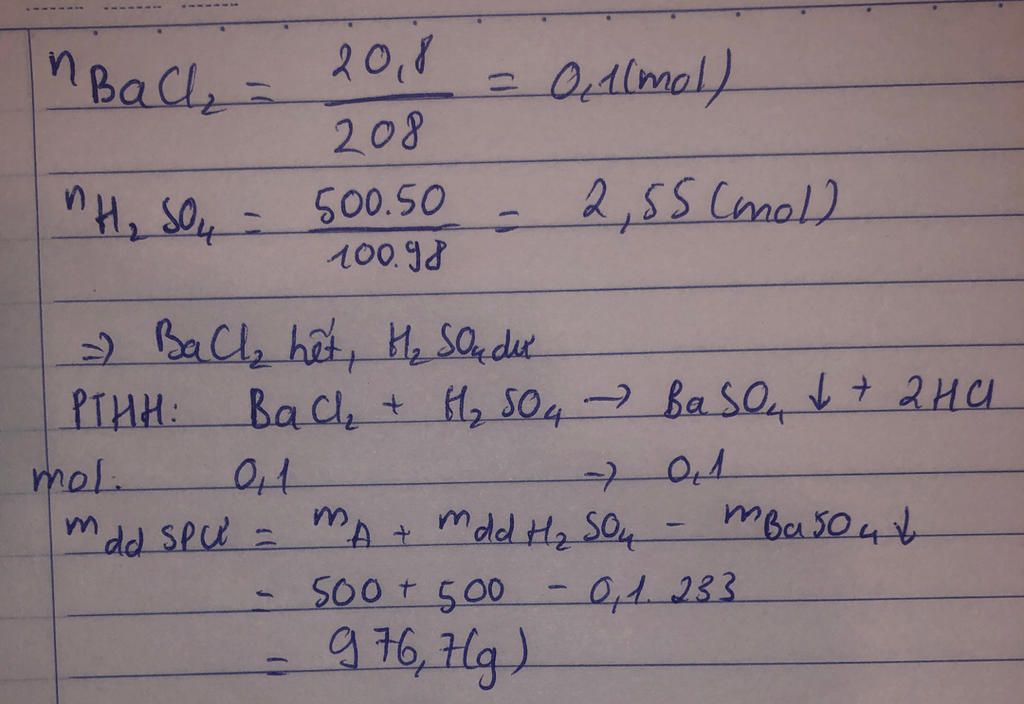 nBaCl₂ = 20,8/208 = 0,1(mol)
nH₂SO₄ = 500.50/100.98 = 2,55(mol)
=> BaCl₂ hết, H₂SO₄ dư
PTHH: BaCl₂ + H₂SO₄ → BaSO₄ ↓ + 2HCl
mol: 0,1 → 0,1
mdd SPƯ = mA + mdd H₂SO₄ - mBaSO₄↓
= 500 + 500 - 0,1.233
= 976,7(g)